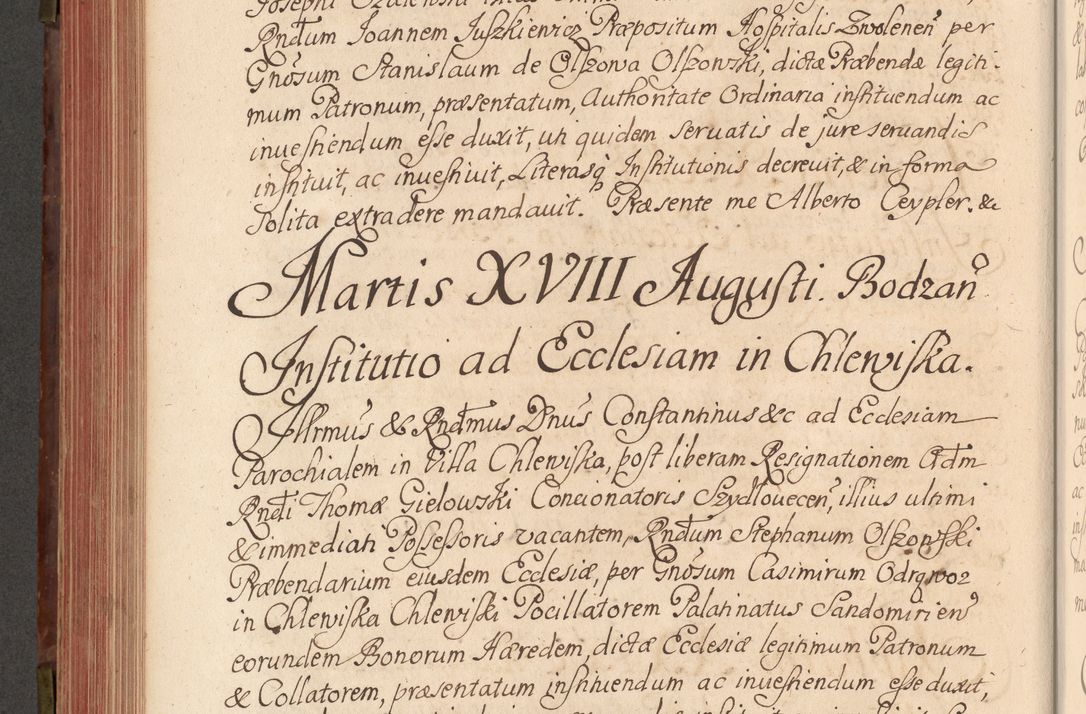 Rndum Joannem Juszkiewicz Præpositum Hospitalis Zwolenen per
Gnosum Stanislaum de Olszowa Olszowski, dictæ Præbendæ legiti-
mum Patronum, præsentatum, Authoritate Ordinaria instituendum ac
inuestiendum esse duxit, uti quidem seruatis de jure seruandis
instituit, ac inuestiuit, Literasq Institutionis decreuit, & in forma
Solita extradere mandauit. Præsente me Alberto Ceypler. &
Martis XVIII Augusti. Bodzan
Institutio ad Ecclesiam in Chlewiska.
Illrmus & Rndmus Dnus Constantinus &c ad Ecclesiam
Parochialem in Villa Chlewiska, post liberam Resignationem Adm
Rndi Thomæ Gielowski Concionatoris Szydlouecen, illius ultimi
& immediati Possessoris vacantem, Rndum Stephanum Olszowski
Præbendarium eiusdem Ecclesiæ, per Gnosum Casimirum Odrowoz
in Chlewiska Chlewiski Pocillatorem Palatinatus Sandomirien
eorundem Bonorum Hæredem, dictæ Ecclesiæ legitimum Patronum
& Collatorem, præsentatum instituendum ac inuestiendum esse duxit,